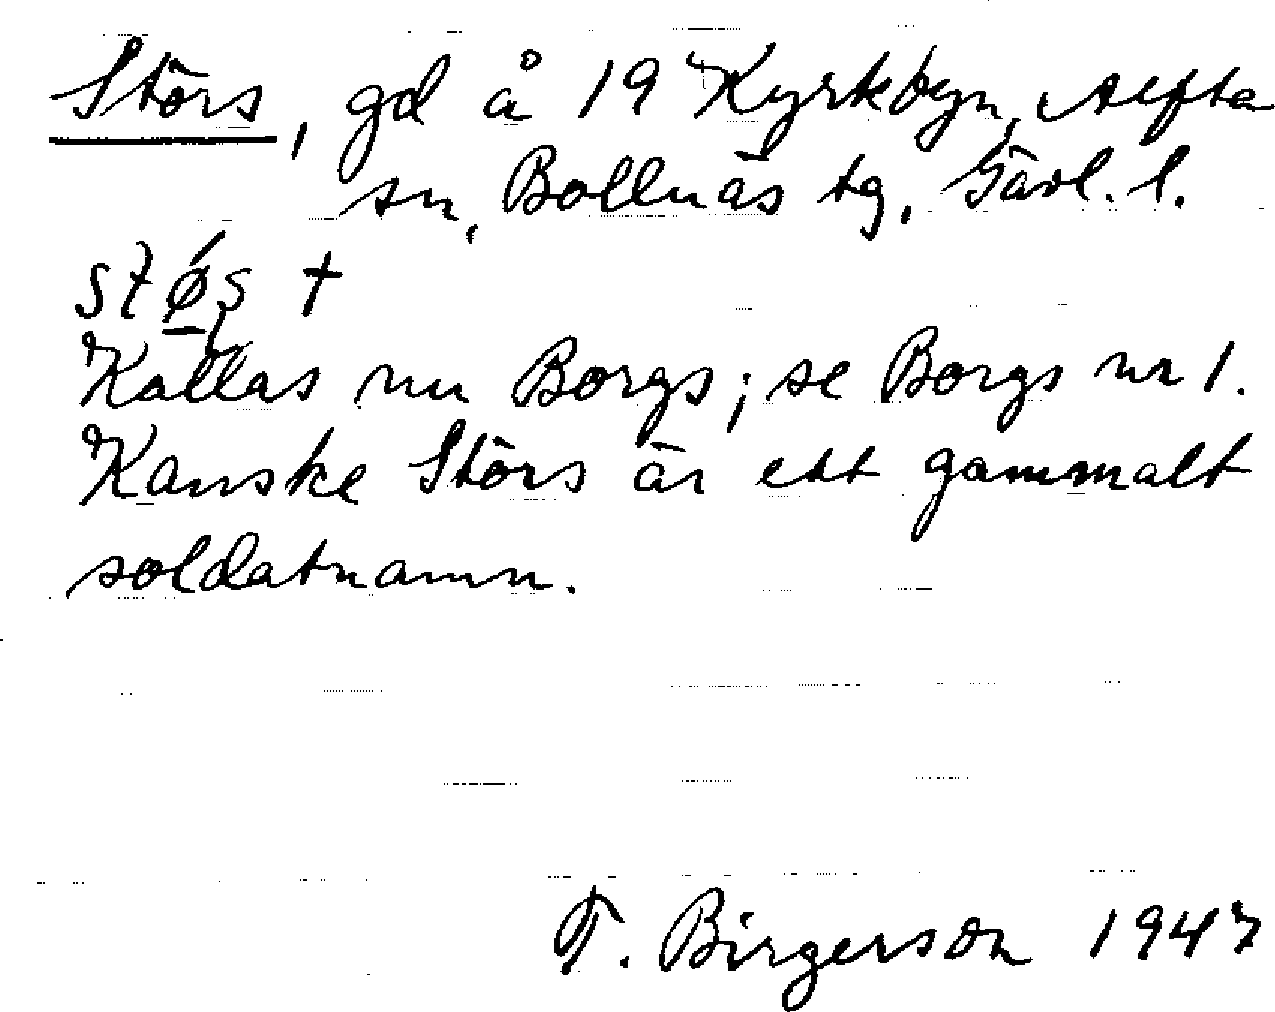 Störs, gd å 19 Kyrkbyn, Alfta
sn, Bollnäs tg, Gävl. l.
Kallas nu Borgs; se Borgs nr 1.
Kanske Störs är ett gammalt
soldatnamn.
T. Birgerson 1947